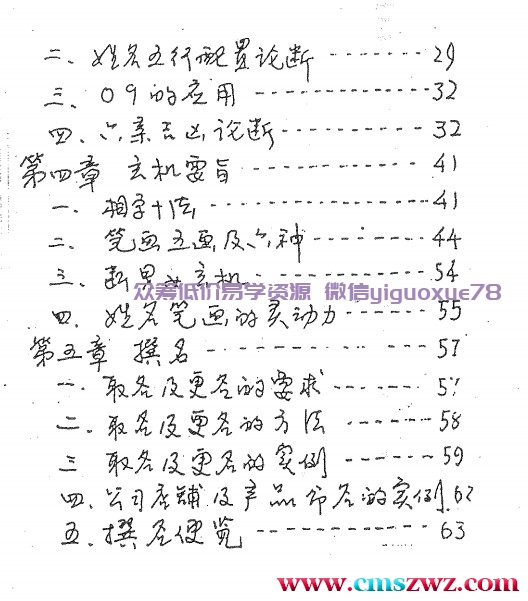 二、姓名五行配置论断 ------ 29
三、09的应用 -------------- 32
四、六亲吉凶论断 ----------- 32
第四章 玄机要旨 ------------- 41
一、相字十法 -------------- 41
二、笔画五画及六神 --------- 44
三、断男女玄机 ------------ 54
众筹低价易学资源 微信yiguoxue78
四、姓名笔画的灵动力 ------ 55
第五章 撰名 --------------- 57
一、取名及更名的要求 ------ 57
二、取名及更名的方法 ------ 58
三 取名及更名的实例 ------ 59
四、公司店铺及产品命名的实例 62
五、撰名便览 ------------- 63
www.cmszwz.com